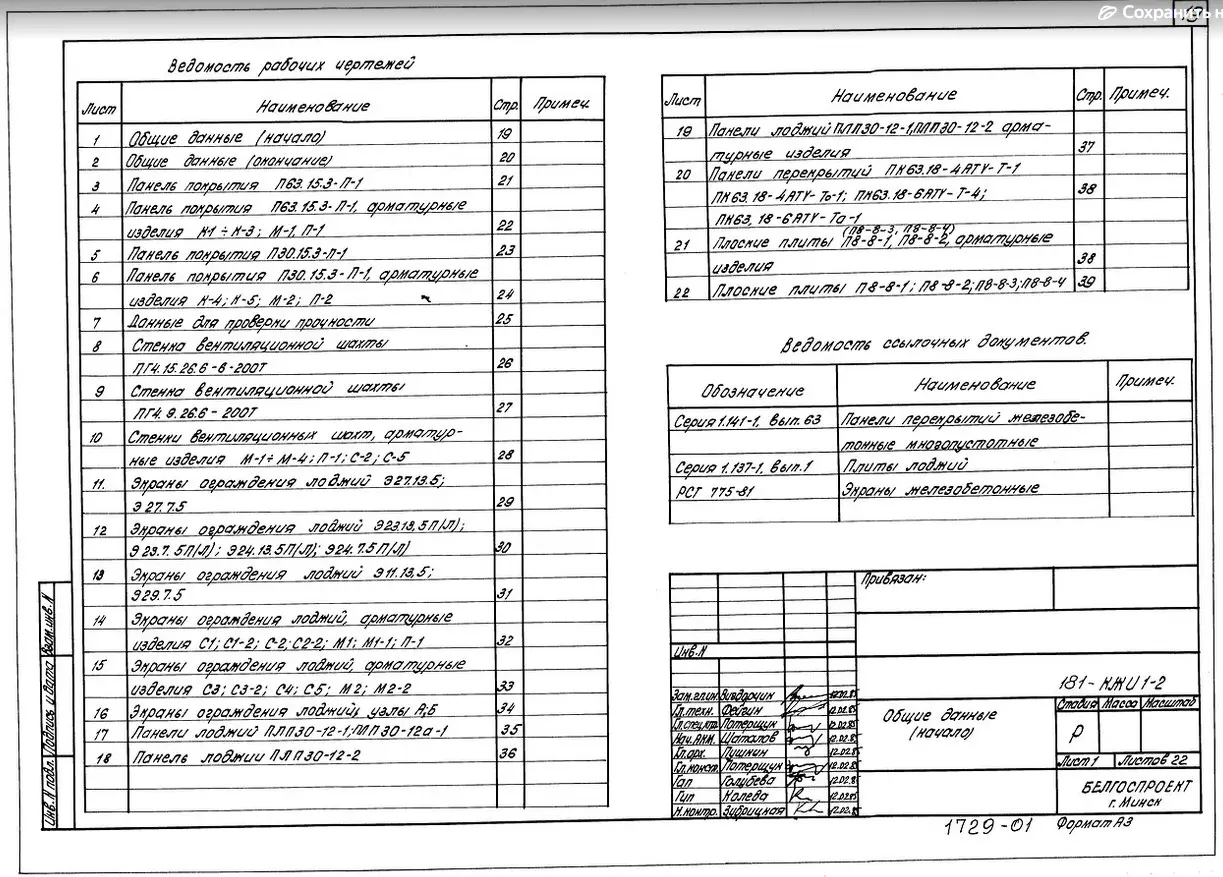 Сохранить н
Ведомость рабочих чертежей
Лист Наименование Стр. Примеч.
1 Общие данные (начало) 19
2 Общие данные (окончание) 20
3 Панель покрытия П63.15.3-П-1 21
4 Панель покрытия П63.15.3-П-1, арматурные
изделия К1÷К-3; М-1, П-1 22
5 Панель покрытия П30.15.3-П-1 23
6 Панель покрытия П30.15.3-П-1, арматурные
изделия К-4; К-5; М-2; П-2 24
7 Данные для проверки прочности 25
8 Стенка вентиляционной шахты
ПГ4.15.26.6-в-200Т 26
9 Стенка вентиляционной шахты
ПГ4.9.26.6-200Т 27
10 Стенки вентиляционных шахт, арматур-
ные изделия М-1÷М-4; П-1; С-2; С-5 28
11. Экраны ограждения лоджий Э27.13.5;
Э27.7.5 29
12 Экраны ограждения лоджий Э23.13.5П(Л);
Э23.7.5П(Л); Э24.13.5П(Л); Э24.7.5П(Л) 30
13 Экраны ограждения лоджий Э11.13.5;
Э29.7.5 31
14 Экраны ограждения лоджий, арматурные
изделия С1; С1-2; С-2; С2-2; М1; М1-1; П-1 32
15 Экраны ограждения лоджий, арматурные
изделия С3; С3-2; С4; С5; М2; М2-2 33
16 Экраны ограждения лоджий, узлы А;Б 34
17 Панели лоджий ПЛП30-12-1; ПЛП30-12а-1 35
18 Панель лоджии ПЛП30-12-2 36
Лист Наименование Стр. Примеч.
19 Панели лоджий ПЛП30-12-1, ПЛП30-12-2 арма-
турные изделия 37
20 Панели перекрытий ПК63.18-4АТУ-Т-1
ПК63.18-4АТУ-Та-1; ПК63.18-6АТУ-Т-4; 38
ПК63.18-6АТУ-Та-1
(П8-8-3, П8-8-4)
21 Плоские плиты П8-8-1, П8-8-2, арматурные
изделия 38
22 Плоские плиты П8-8-1; П8-8-2; П8-8-3; П8-8-4 39
Ведомость ссылочных документов.
Обозначение Наименование Примеч.
Серия 1.141-1, вып. 63 Панели перекрытий железобе-
тонные многопустотные
Серия 1.137-1, вып. 1 Плиты лоджий
РСТ 775-81 Экраны железобетонные
Привязан:
Инв.N
181-КЖИ1-2
Общие данные
(начало)
Стадия Масса Масштаб
Р
Лист 1 Листов 22
БЕЛГОСПРОЕКТ
г. Минск
Гл.техн. Фейгин 12.02.85
Гл.спец.кт. Потерщук 12.02.85
Нач.АКМ. Шаталов 12.02.85
Гл.арх. Пушкин 12.02.85
Гл.конст. Потерщук 12.02.85
Гап Голубева 12.02.8
Гип Колева 12.02.85
Н.контр. Зубрицкая 12.02.85
1729-01 Формат А3
Инв.N подл. Подпись и дата Взам.инв.N